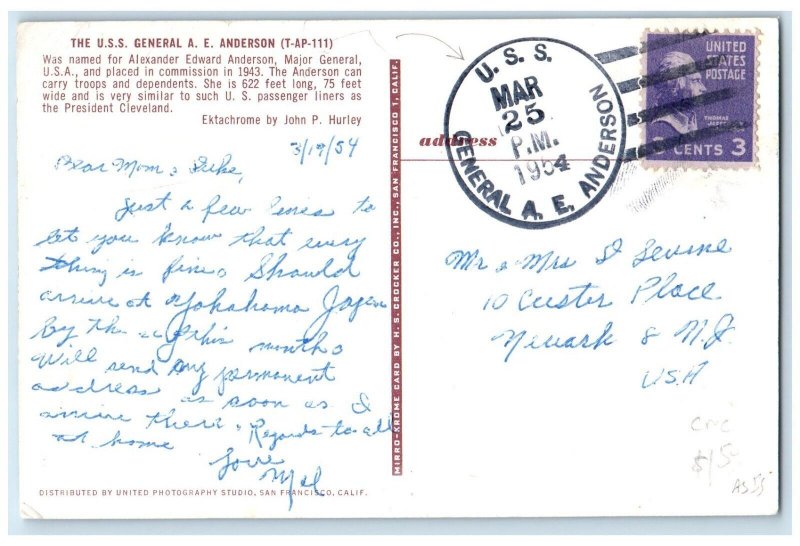 THE U.S.S. GENERAL A. E. ANDERSON (T-AP-111)
Was named for Alexander Edward Anderson, Major General,
U.S.A., and placed in commission in 1943. The Anderson can
carry troops and dependents. She is 622 feet long, 75 feet
wide and is very similar to such U. S. passenger liners as
the President Cleveland.
Ektachrome by John P. Hurley
3/19/54
Dear Mom &
Just a few lines to
let you know that every
thing is fine. Should
arrive at Yokahama Japan
by the of this month.
Will send my permanent
address as soon as I
arrive there. Regards to all
at home
Love
Mel
DISTRIBUTED BY UNITED PHOTOGRAPHY STUDIO, SAN FRANCISCO, CALIF.
MIRRO-KROME CARD BY H. S. CROCKER CO., INC., SAN FRANCISCO 1, CALIF.
address
U. S. S.
GENERAL A. E. ANDERSON
MAR
25
P.M.
1954
UNITED
STATES
POSTAGE
THOMAS
CENTS 3
Mr & Mrs I Levine
10 Custer Place
Newark 8 N.J.
USA
AS55